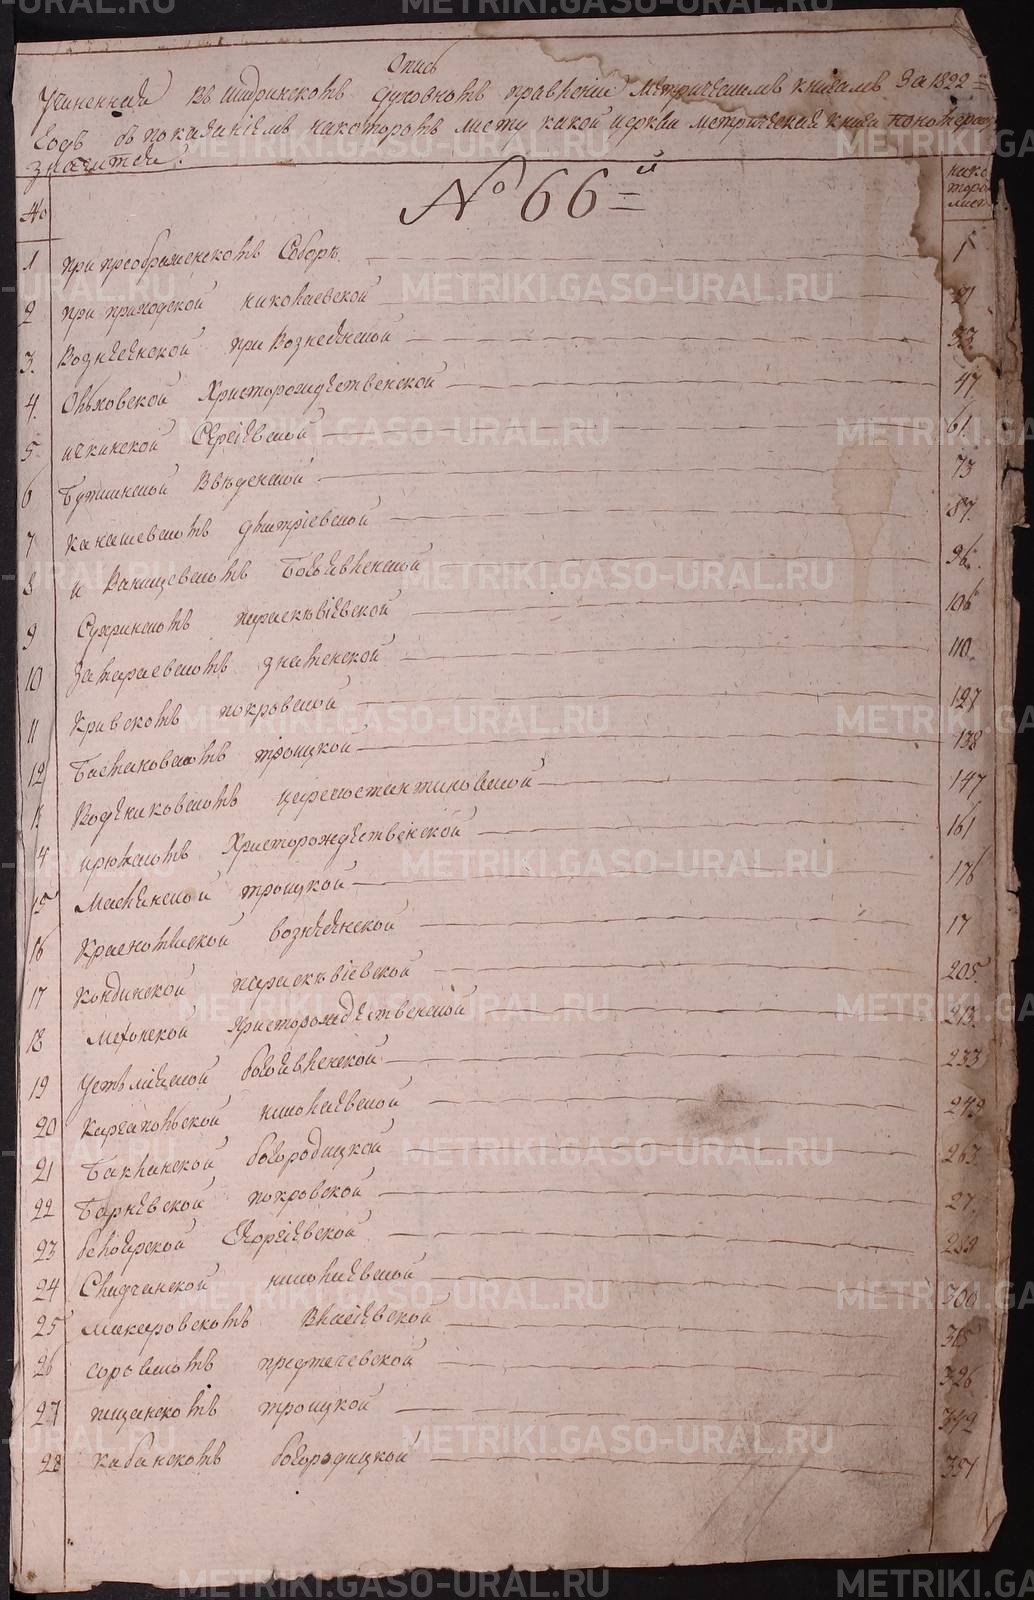 Опись
Учиненная въ шадринскомъ духовномъ правленіи метрическимъ книгамъ за 1822-й
Годъ съ показаніемъ на которомъ листу какой церкви метрическая книга по номерамъ
значится:
№
№ 66-й
на ко
торо
лист
1 при преображенскомъ Соборѣ 1
2 при приходской николаевской 21
3. Вознесенской при Вознесенской 33
4. Ольховской Христорождественской 47.
5 ичкинской Сергіевской 61.
6 Бутинской Введенской 73
7 канашевскомъ дмитріевской 87.
8 и Ванищевскомъ Богоявленской 96.
9 Сухринскомъ параскевіевской 106
10 Замараевскомъ знаменской 110.
11 Кривскомъ покровской 127
12 Басмановскомъ троицкой 138
Водениковскомъ цареконстантиновской 147
крюкскомъ Христорождественской 161
15 Маслянской троицкой 176
16 Красномыской вознесенской 17
17 Кондинской параскевіевской 205.
18 Мехонской христорождественской 213.
19 Усть міаской богоявленской 233
20 Каргапольской николаевской 249
21 Бакланской богородицкой 263.
22 Барневской покровской 27.
23 белоярской Георгіевской 289
24 Смирнской николаевской 300
25 макаровскомъ Власіевской 315
26 соровскомъ предтечевской 326
27 пещанскомъ троицкой 342
28 кабанскомъ богородицкой 357
METRIKI.GASO-URAL.RU